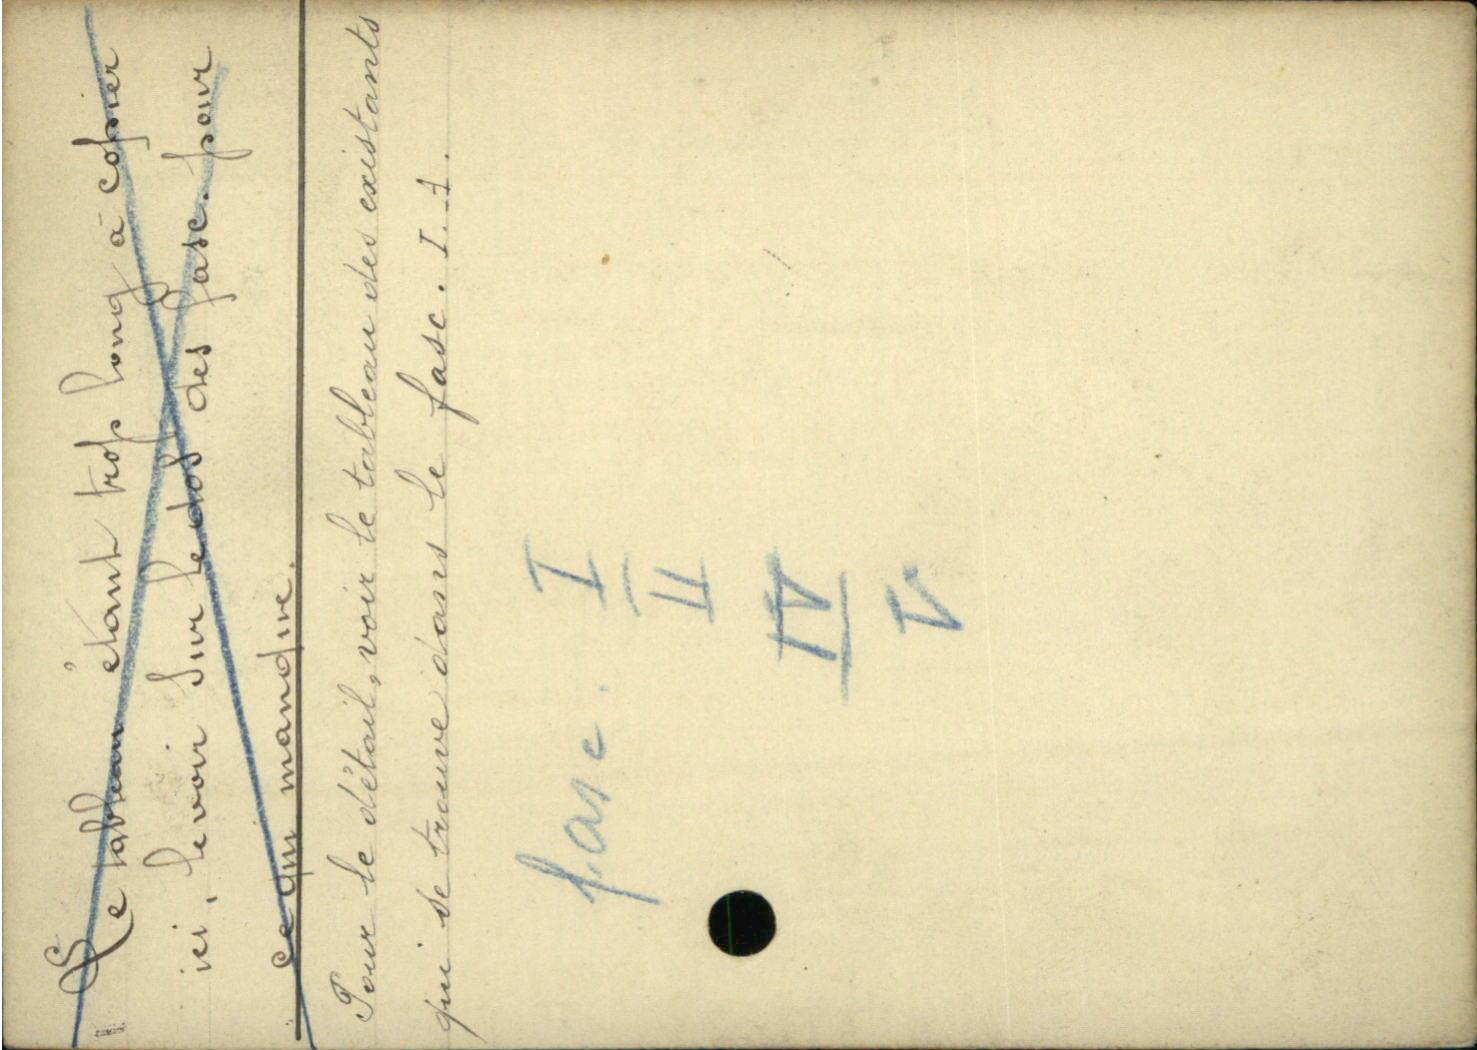 Le tableau étant trop long à copier
ici, le voir sur le dos des fasc. pour
ce qui manque.
Pour le détail, voir le tableau des existants
qui se trouve dans le fasc. I. 1.
fasc. I
II
IV
V